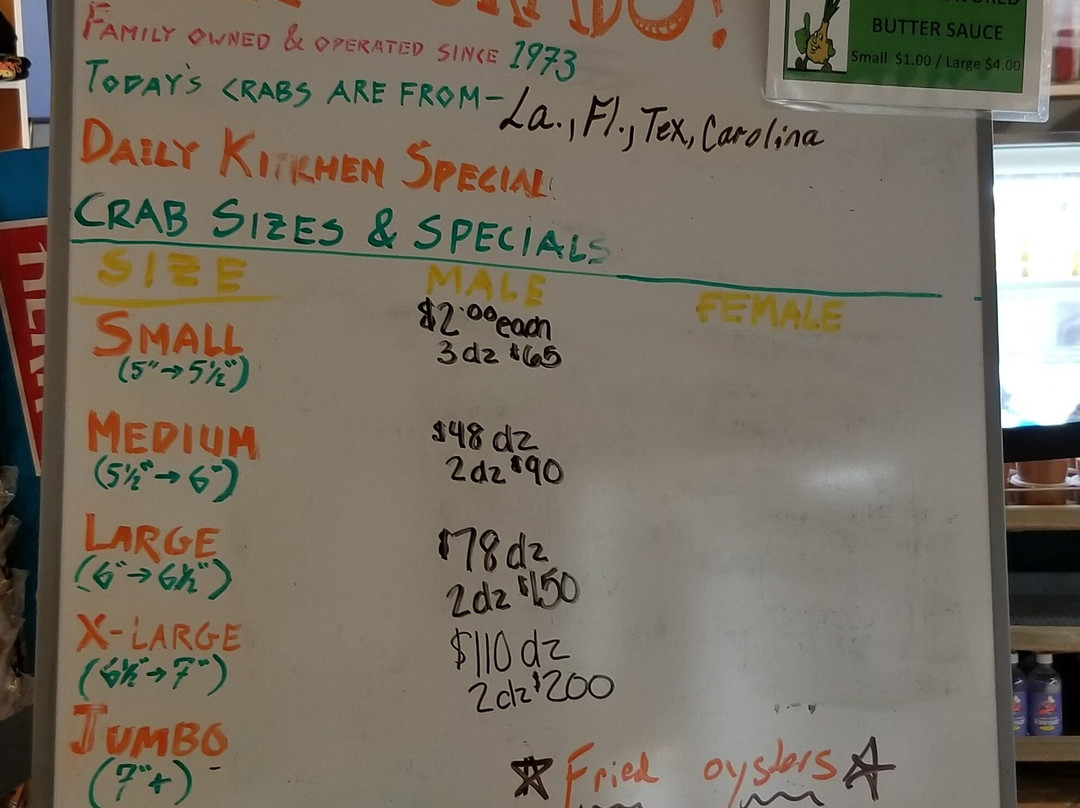 FAMILY OWNED & OPERATED SINCE 1973
TODAY'S CRABS ARE FROM- La., Fl., Tex, Carolina
DAILY KITCHEN SPECIAL
CRAB SIZES & SPECIALS
SIZE MALE FEMALE
SMALL $2.00 each
(5"→5½") 3 dz $65
MEDIUM $48 dz
(5½"→6") 2dz $90
LARGE $78 dz
(6"→6½") 2dz $150
X-LARGE $110 dz
(6½"→7") 2dz $200
JUMBO
(7"+)
Fried oysters
BUTTER SAUCE
Small $1.00 / Large $4.00